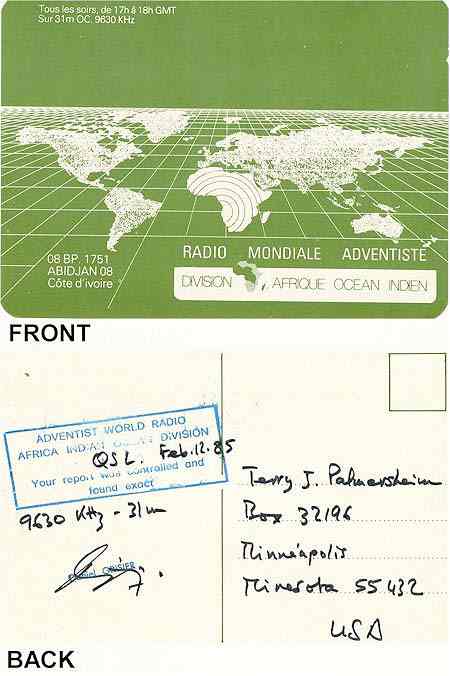 Tous les soirs, de 17h à 18h GMT
Sur 31m OC. 9630 KHz
08 BP. 1751
ABIDJAN 08
Côte d'ivoire
RADIO MONDIALE ADVENTISTE
DIVISION AFRIQUE OCEAN INDIEN
FRONT
ADVENTIST WORLD RADIO
AFRICA INDIAN OCEAN DIVISION
QSL. Feb. 12. 85
Your report was controlled and
found exact
9630 KHz - 31m
GRISIER
Terry J. Palmersheim
Box 32196
Minneapolis
Minesota 55432
USA
BACK